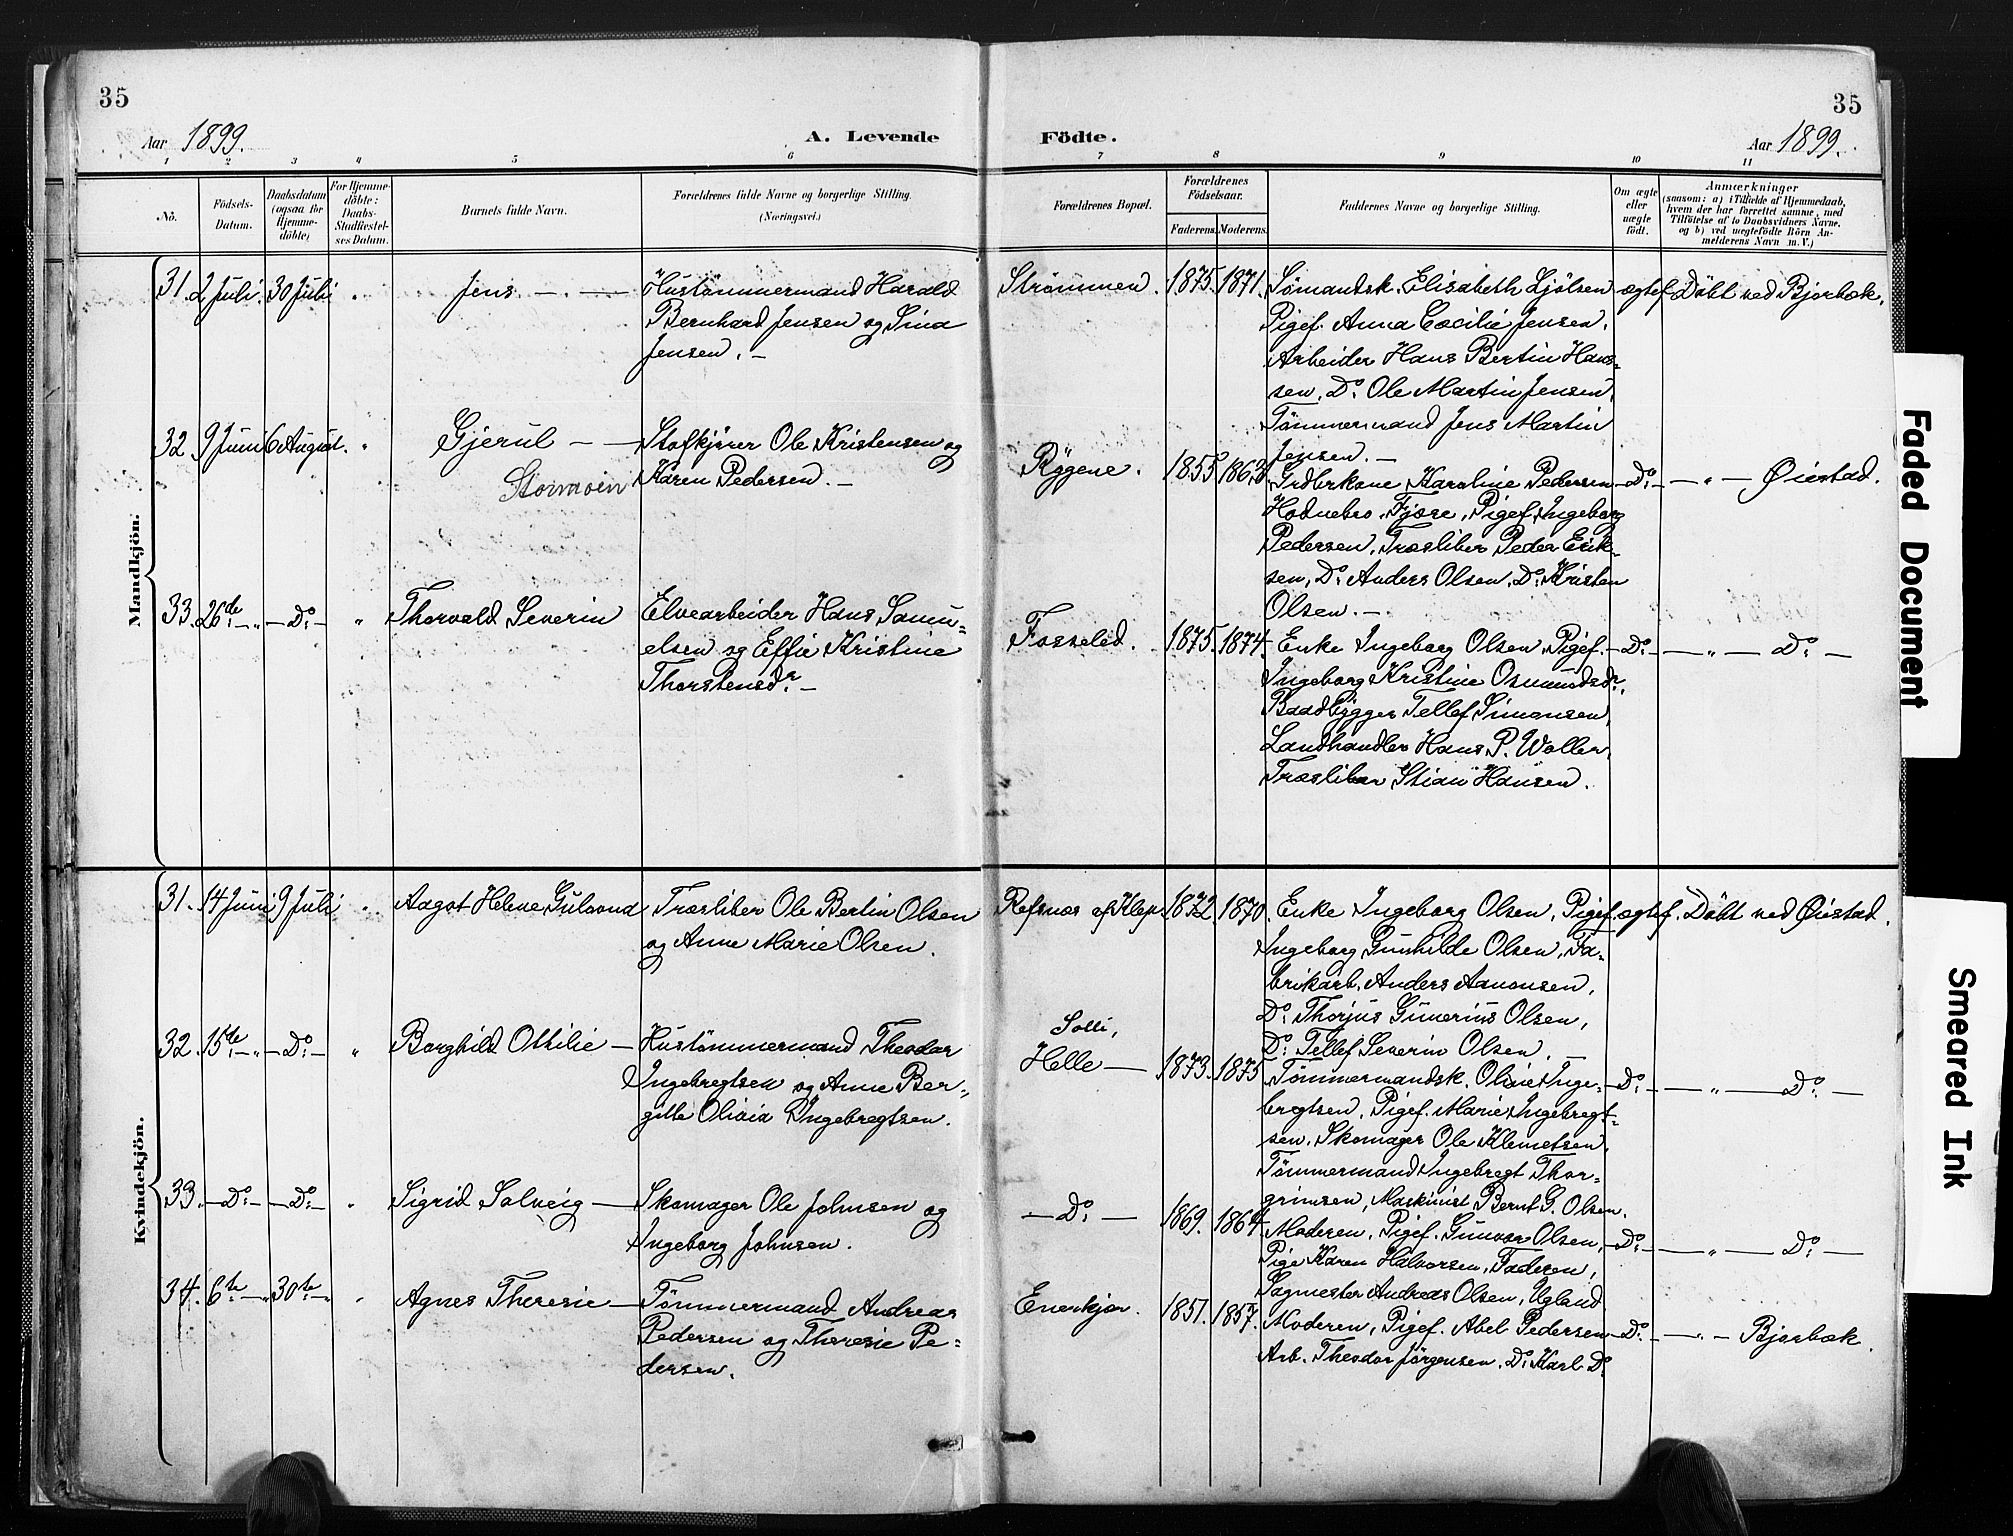 35
35
Aar 1899.
A. Levende
Födte.
Aar 1899.
1
2
3
4
5
6
7
8
9
10
11
No.
Födsels-
Datum.
Daabsdatum
(ogsaa for
Hjemme-
döbte)
For Hjemme-
döbte:
Daabs-
Stadfæstel-
ses Datum.
Barnets fulde Navn.
Forældrenes fulde Navne og borgerlige Stilling.
(Næringsvei.)
Forældrenes Bopæl.
Forældrenes
Födselsaar.
Faderens.
Moderens.
Faddernes Navne og borgerlige Stilling.
Om ægte
eller
uægte
født.
Anmærkninger
(saasom: a) i Tilfælde af Hjemmedaab,
hvem der har forrettet samme, med
Tilføielse af to Daabsvidners Navne.
og b) ved uægtefödte Börn An-
melderens Navn m.V.)
Mandkjön.
31. 2 Juli. 30 Juli " Jens — . —
Hustømmermand Harald
Bernhard Jensen og Sina
Jensen. —
Strømmen. 1875. 1871.
Sømandsk. Elisabeth Ljølsen
Pigef. Anna Cæcilie Jensen,
Arbeider Hans Bertin Han-
sen, Do. Ole Martin Jensen,
Tømmermand Jens Martin
Jensen. —
ægtef. Döbt ved Bjorbæk.
32. 9 Juni 6 August. " Gjerul — —
Stormoen
Stofkjører Ole Kristensen og
Karen Pedersen. —
Rygene. 1855. 1863.
Grdbrkone Karoline Pedersen
Hodnebro, Fjære, Pigef. Ingeborg
Pedersen, Træsliber Peder Erik-
sen, Do. Anders Olsen, Do. Kristen
Olsen. —
— Do. — — " — Øiestad.
33. 26de — " — Do. — " Thorvald Severin
Elvearbeider Hans Samu-
elsen og Effie Kristine
Thorstensdr. —
Fosselid. 1875. 1874.
Enke Ingeborg Olsen, Pigef.
Ingeborg Kristine Osmundsdr.,
Baadbygger Tellef Simonsen,
Landhandler Hans P. Woller,
Træsliber Stian Hansen.
— Do. — — " — Do. —
Kvindekjön.
31. 14 Juni 9 Juli " Aagot Helene Gulovnd
Træsliber Ole Bertin Olsen
og Anne Marie Olsen.
Refsnæs af Hleje 1872. 1870.
Enke Ingeborg Olsen, Pigef.
Ingeborg Gunhilde Olsen, Fa-
brikarb. Anders Aanonsen,
Do. Thorjus Gunerius Olsen,
Do. Tellef Severin Olsen. —
ægtef. Döbt ved Øiestad.
32. 15de — " — Do. — " Borghild Ottilie —
Hustømmermand Theodor
Ingebregtsen og Anne Ber-
gitte Olivia Ingebregtsen.
Solli,
Helle — 1873. 1875
Tømmermandsk. Oline Inge-
bregtsen, Pigef. Marie Ingebregt-
sen, Skomager Ole Klemetsen,
Tømmermand Ingebregt Thor-
grimsen, Maskinist Bernt G. Olsen.
— Do. — — " — Do. —
33. — Do. — — Do. — " Sigrid Solveig —
Skomager Ole Johnsen og
Ingeborg Johnsen.
— Do. — 1869. 1864.
Moderen, Pigef. Gunvor Olsen,
Pige Karen Halvorsen, Faderen,
Sagmester Andreas Olsen, Ugland
— Do. — — " — Do. —
34. 6te — " 30te — " " Agnes Theresie —
Tømmermand Andreas
Pedersen og Theresie Pe-
dersen.
Enerkjær. 1851. 1857.
Moderen, Pigef. Abel Pedersen
Arb. Theodor Jörgensen, Do. Karl Do.
— Do. — — " — Bjorbæk.
Faded Document
Smeared Ink